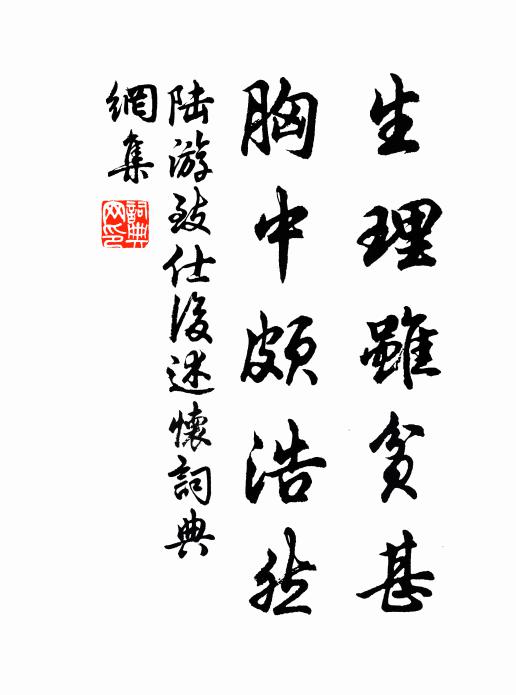 生理雖貧甚
胸中頗浩然
陆游致仕後述懷詞典
網集
詞典網印